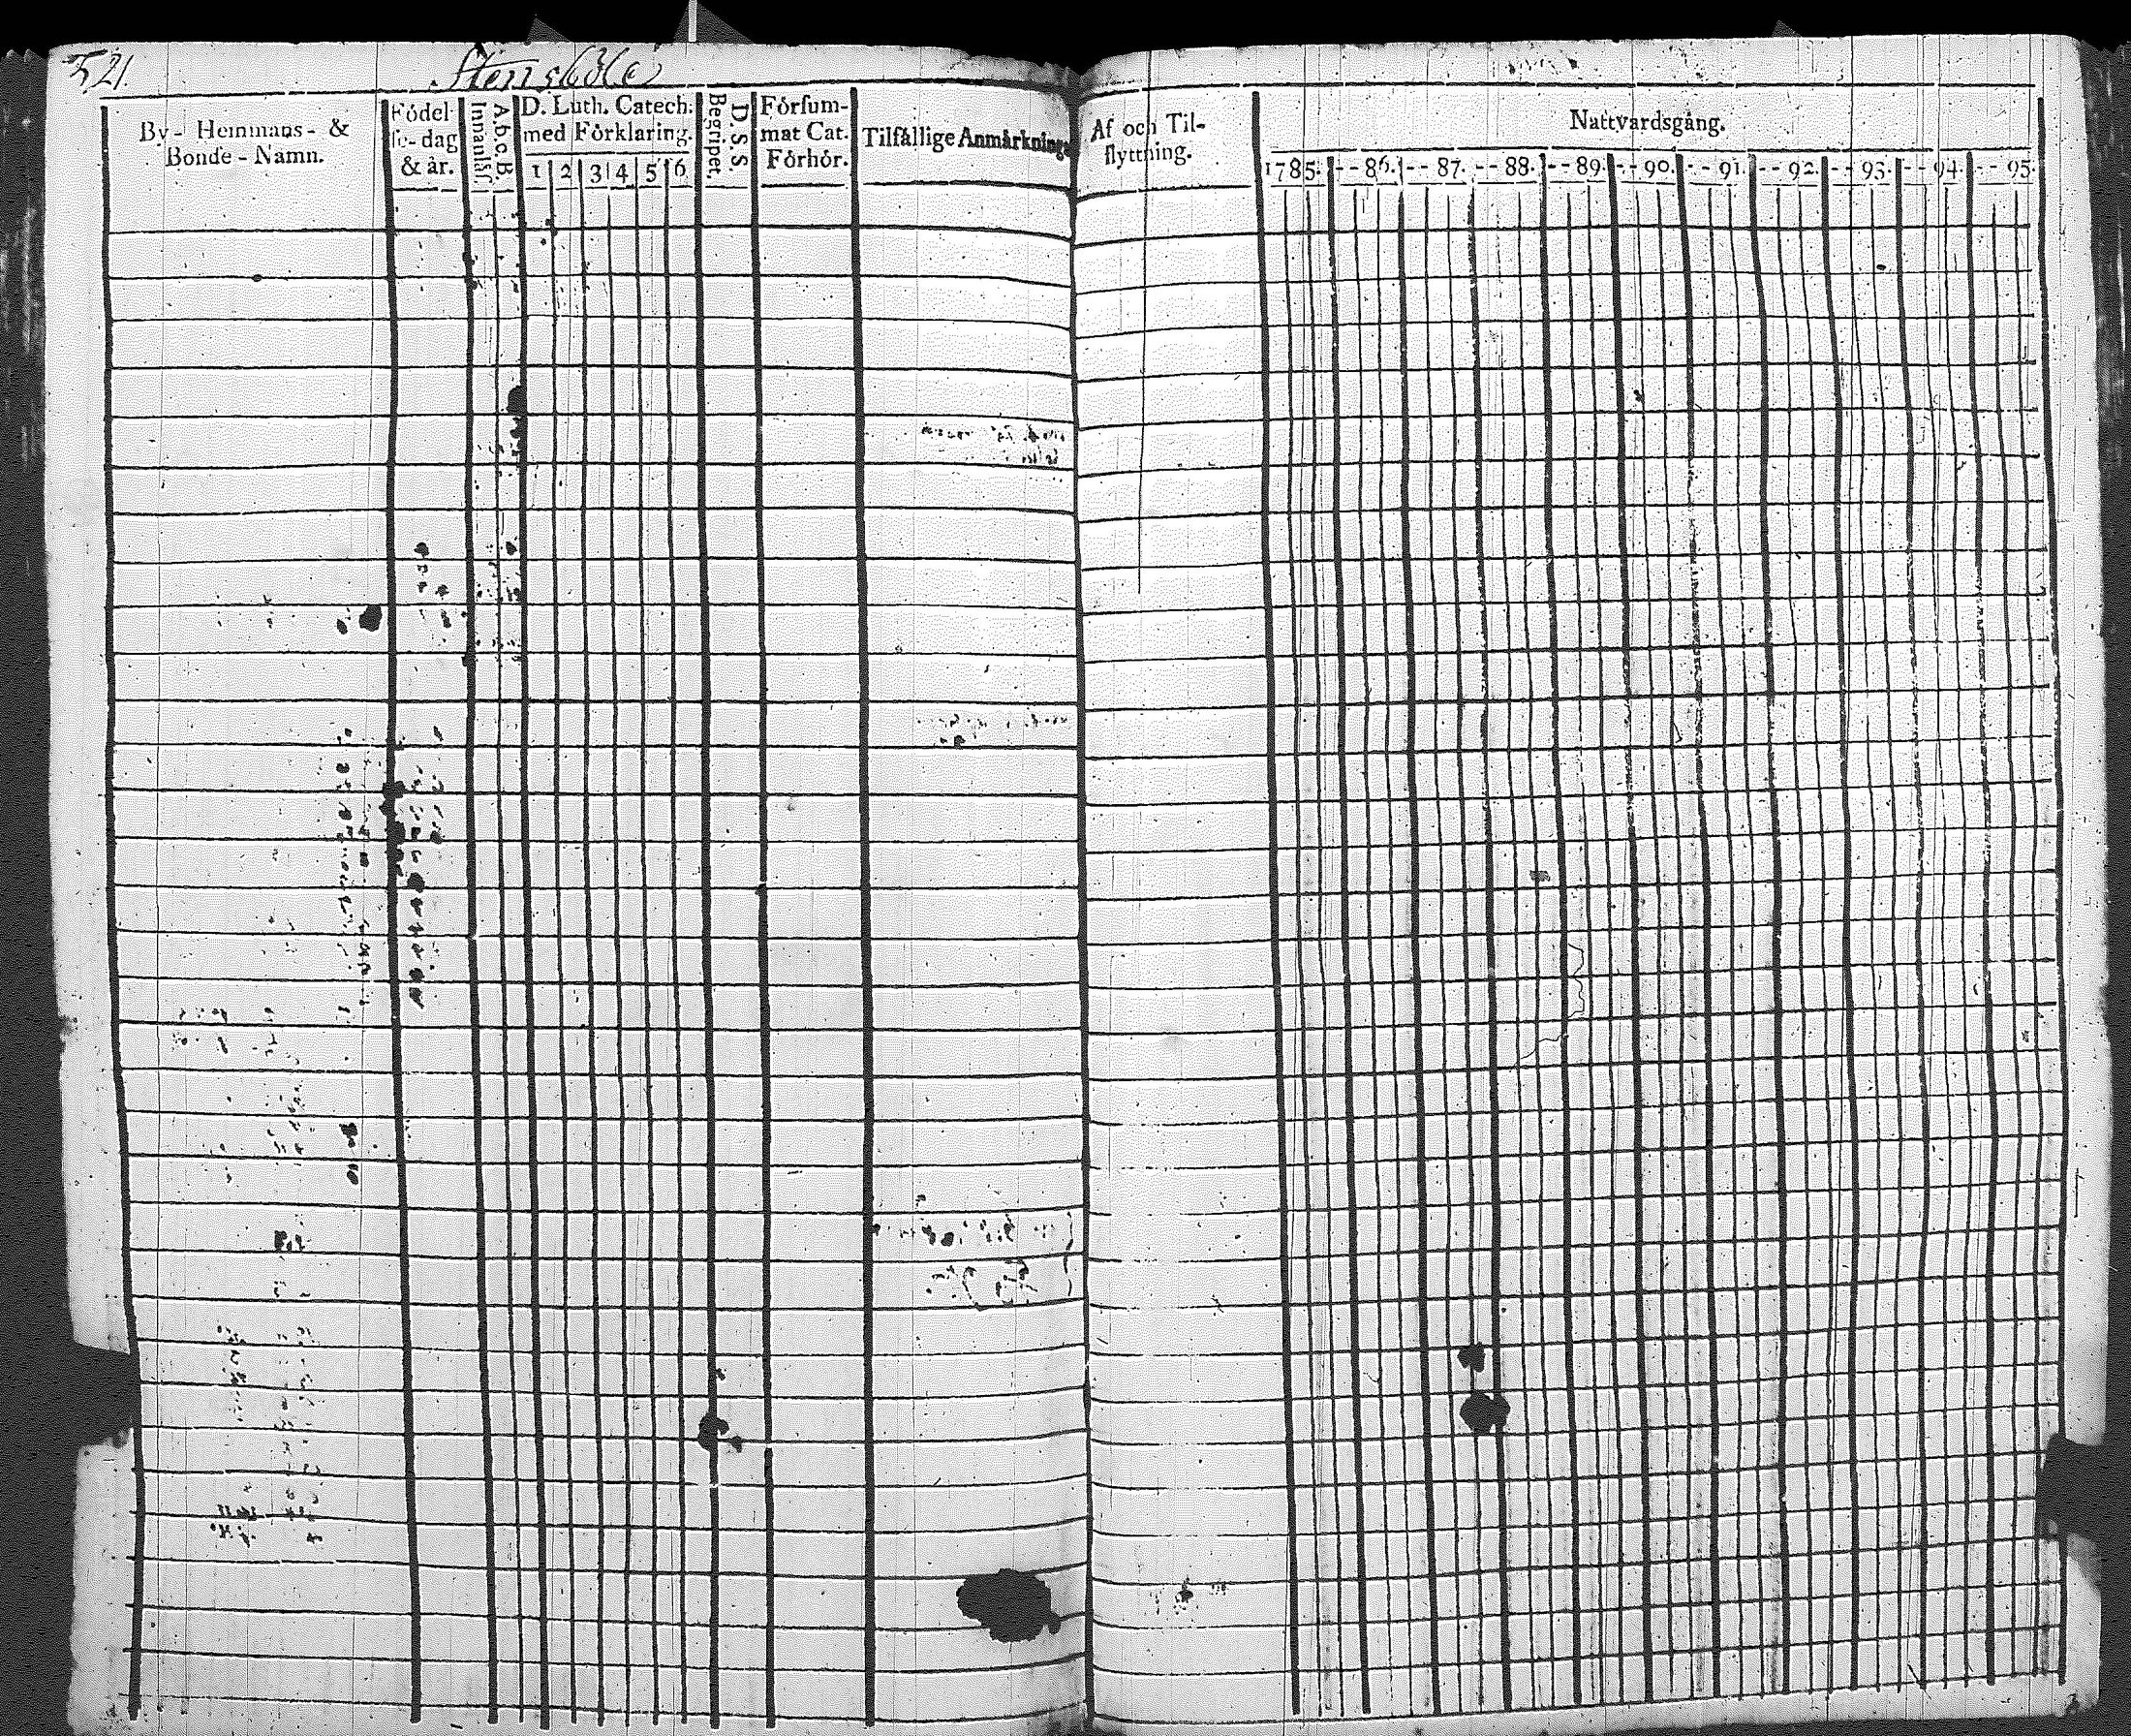 521.
Stensböle
By- Hemmans- &
Bonde-Namn.
Födel-
se-dag
& år.
Innanläs.
A.b.c.B.
D. Luth. Catech.
med Förklaring.
1 2 3 4 5 6
Begripet.
D. S. S.
Försum-
mat Cat.
Förhör.
Tilfällige Anmärkninga
Af och Til-
flyttning.
Nattvardsgång.
1785. - - 86. - - 87. - - 88. - - 89. - - 90. - - 91. - - 92. - - 93. - - 94. - - 95.